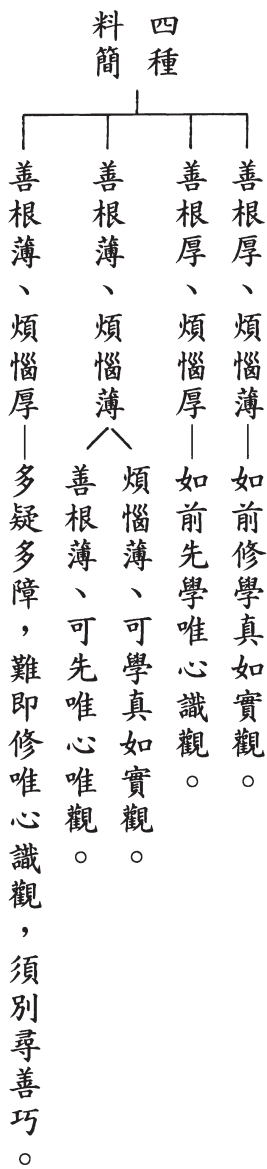 四種
料簡
善根厚、煩惱薄
如前修學真如實觀。
善根厚、煩惱厚
如前先學唯心識觀。
善根薄、煩惱薄
煩惱薄、可學真如實觀。
善根薄、可先唯心唯觀。
善根薄、煩惱厚
多疑多障，難即修唯心識觀，須別尋善巧。